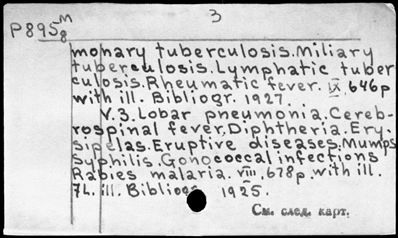 3
P895 M/8
monary tuberculosis. Miliary
tuberculosis. Lymphatic tuber
culosis. Rheumatic fever. IX, 646p
with ill. Bibliogr. 1927.
V.3. Lobar pneumonia. Cereb-
rospinal fever. Diphtheria. Ery-
sipelas. Eruptive diseases. Mumps
Syphilis. Gonococcal infections
Rabies malaria. VIII, 678p. with ill.
7L. ill. Bibliogr 1925.
См. след. карт.